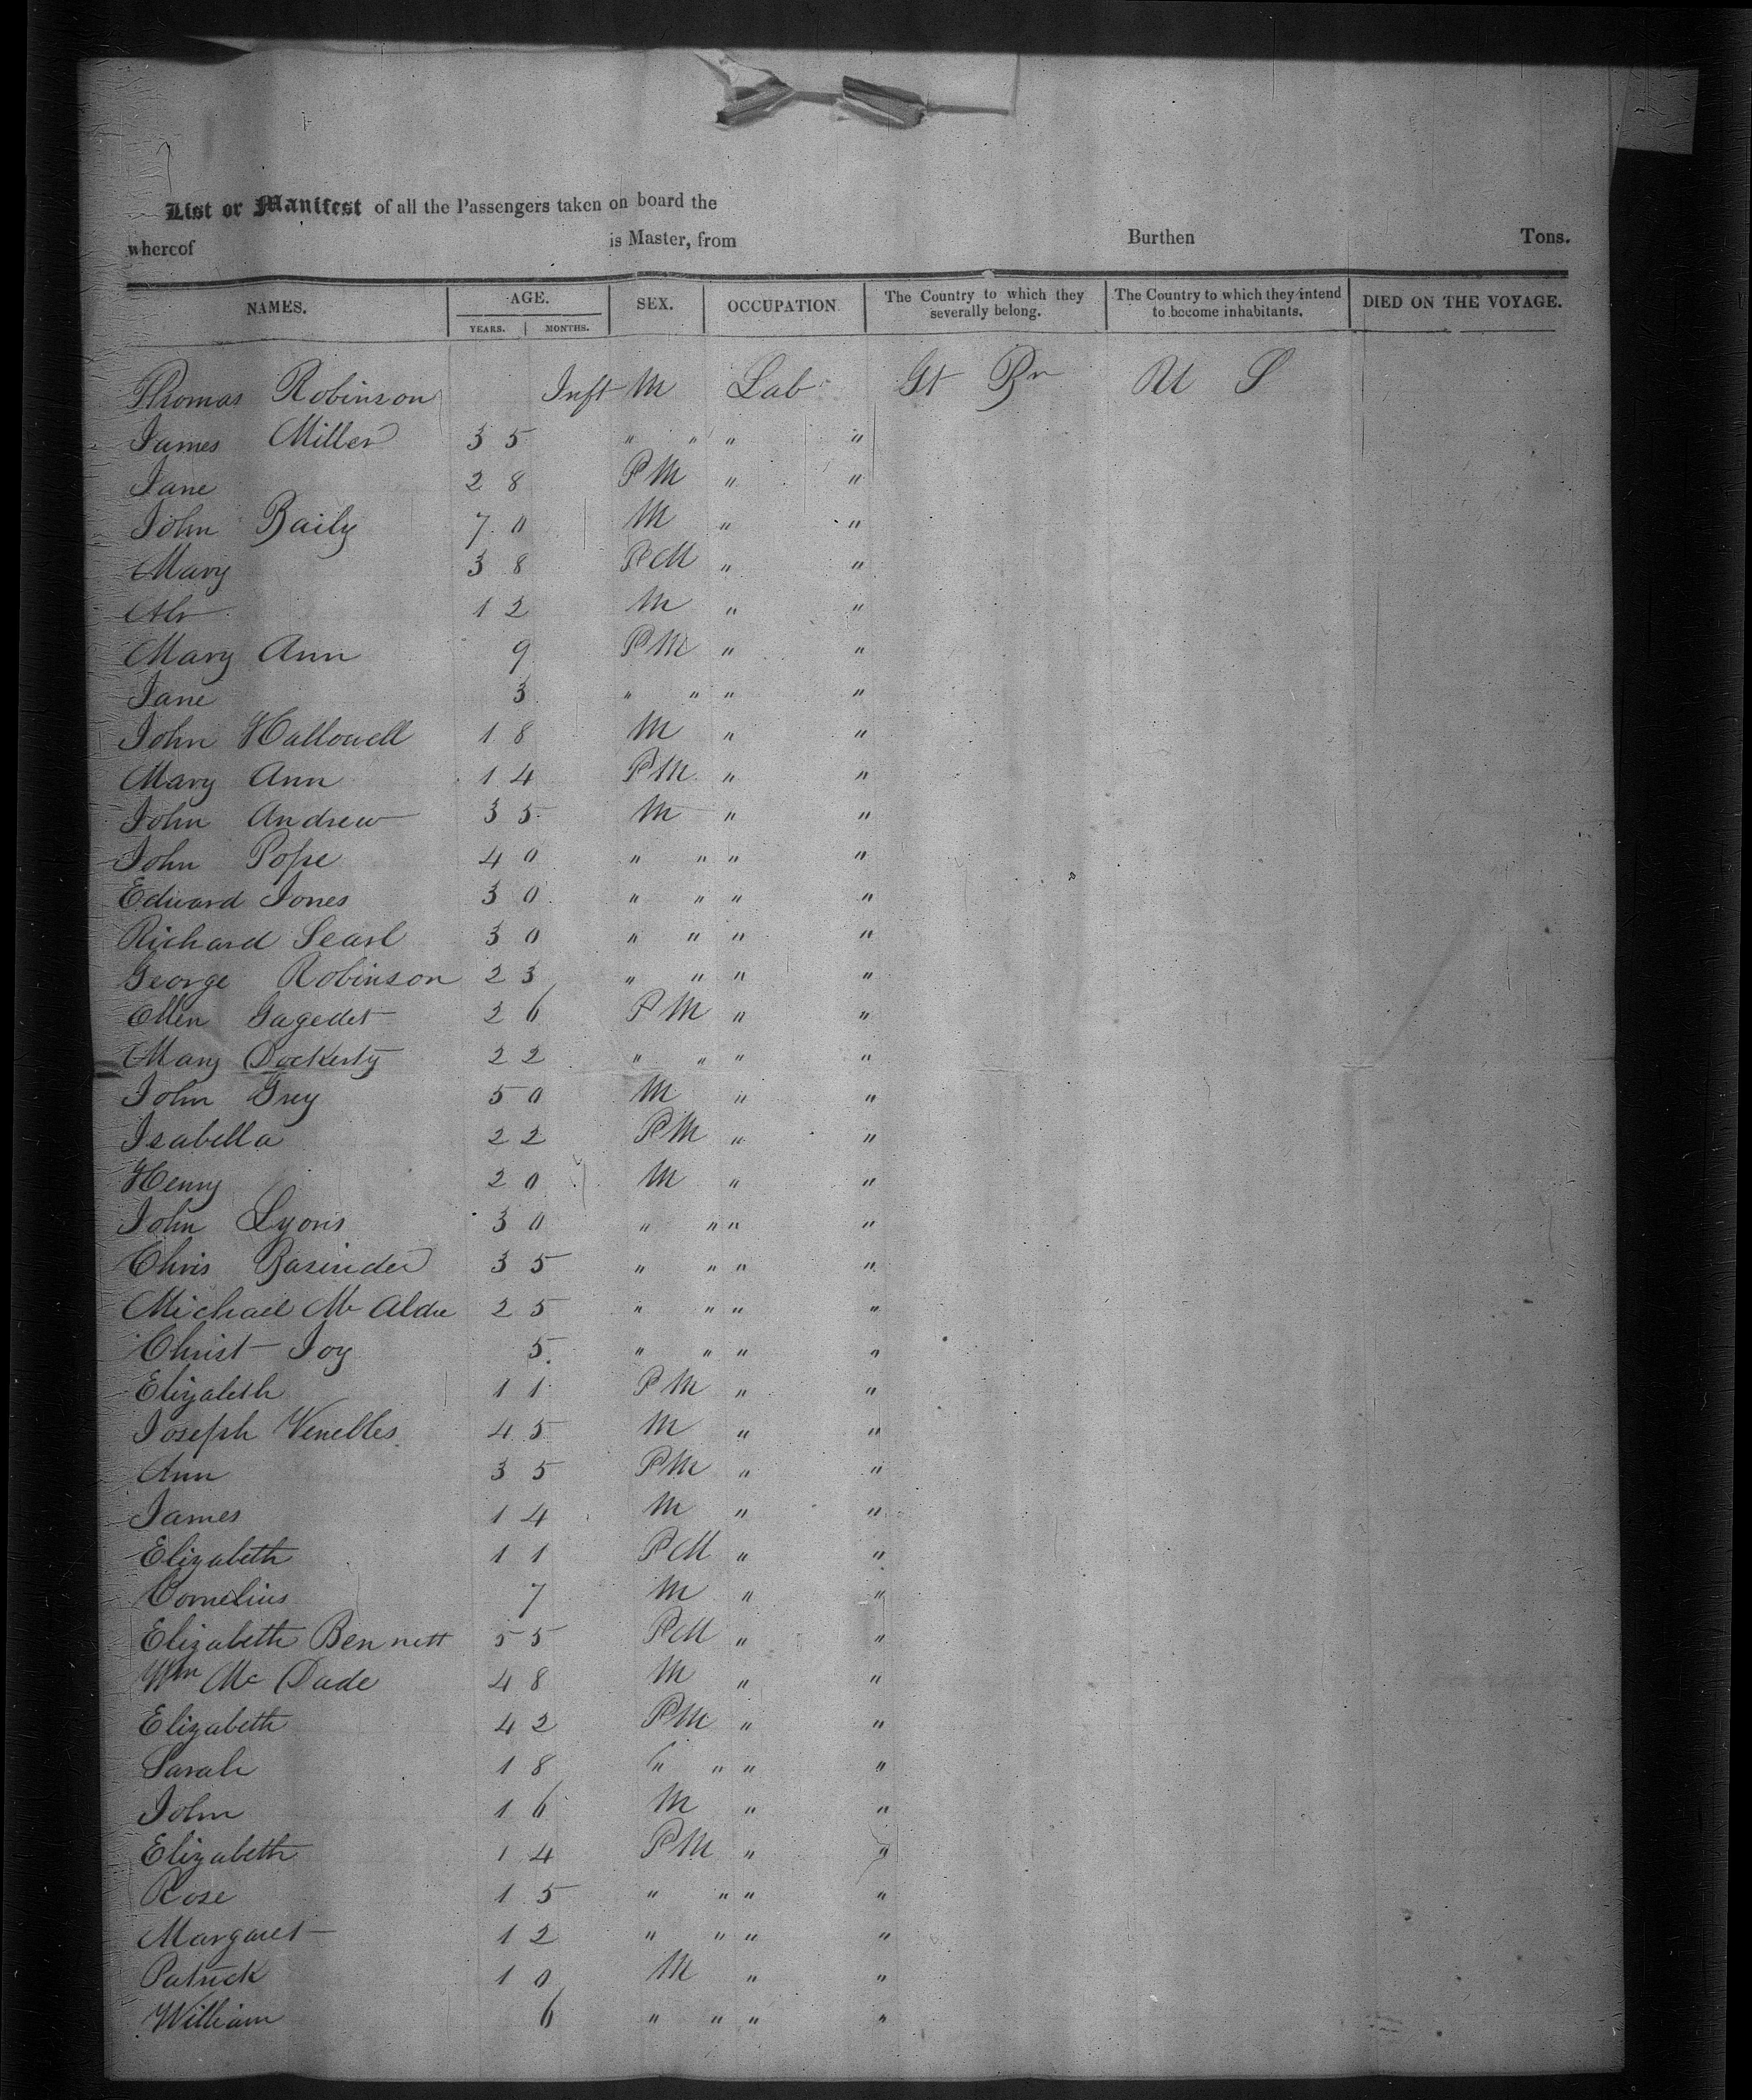 List or Manifest of all the Passengers taken on board the
whereof is Master, from Burthen Tons.
NAMES. AGE. SEX. OCCUPATION The Country to which they severally belong. The Country to which they intend to become inhabitants. DIED ON THE VOYAGE.
YEARS. MONTHS.
Thomas Robinson Inft M Lab Gt Bn U S
James Miller 35 " " " "
Jane 28 FM " "
John Baily 70 M " "
Mary 38 FM " "
12 M " "
Mary Ann 9 FM " "
Jane 3 " " " "
John Hallowell 18 M " "
Mary Ann 14 FM " "
John Andrew 35 M " "
John Pope 40 " " " "
Edward Jones 30 " " " "
Richard Searl 30 " " " "
George Robinson 23 " " " "
Ellen Gagedet 26 FM " "
Mary Dockerty 22 " " " "
John Grey 50 M " "
Isabella 22 FM " "
Henry 20 M " "
John Lyons 30 " " " "
Chris 35 " " " "
Michael Mc 25 " " " "
Christ Joy 5 " " " "
Elizabeth 11 FM " "
Joseph Venebles 45 M " "
Ann 35 FM " "
James 14 M " "
Elizabeth 11 FM " "
Cornelius 7 M " "
Elizabeth Bennett 55 FM " "
Wm Mc Dade 48 M " "
Elizabeth 42 FM " "
Sarah 18 " " " "
John 16 M " "
Elizabeth 14 FM " "
Rose 15 " " " "
Margaret 12 " " " "
Patrick 10 M " "
William 6 " " " "